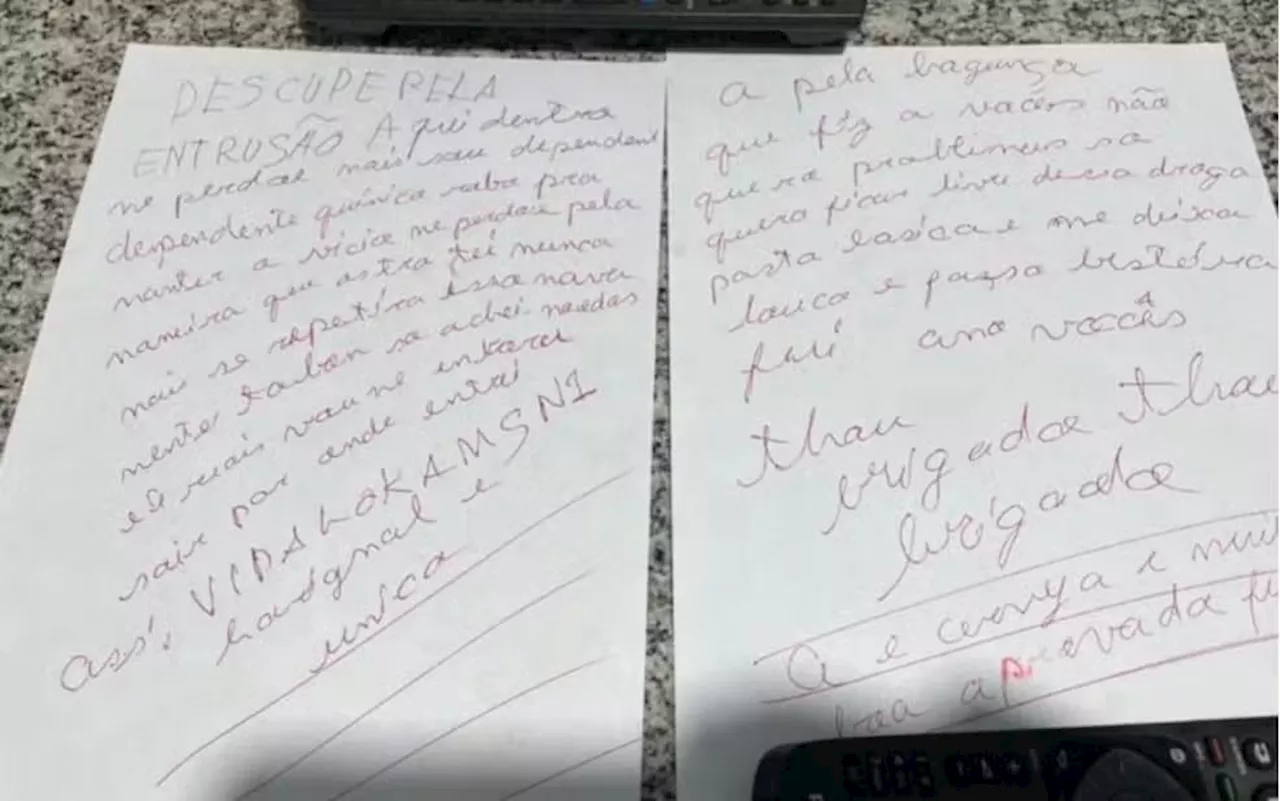 DESCUPE PELA
ENTRUSÃO Aqui dentro
me perdoe mais sou dependent
dependente química robo pra
manter a vicio me perdoe pela
maneira que entrei nunca
mais se repetira essa nova
mente so achei moedas
sair por onde entrei
ass: VIDA LOKA MSN1
e
unica
a pela bagunça
que fiz a vocês não
quero problemas so
quero ficar livre dessa droga
pasta basica e me deixa
louco e posso
fui amo vocês
thau
brigadoe thau
brigadoe
A e cerveja e mui
boa aprovada fu